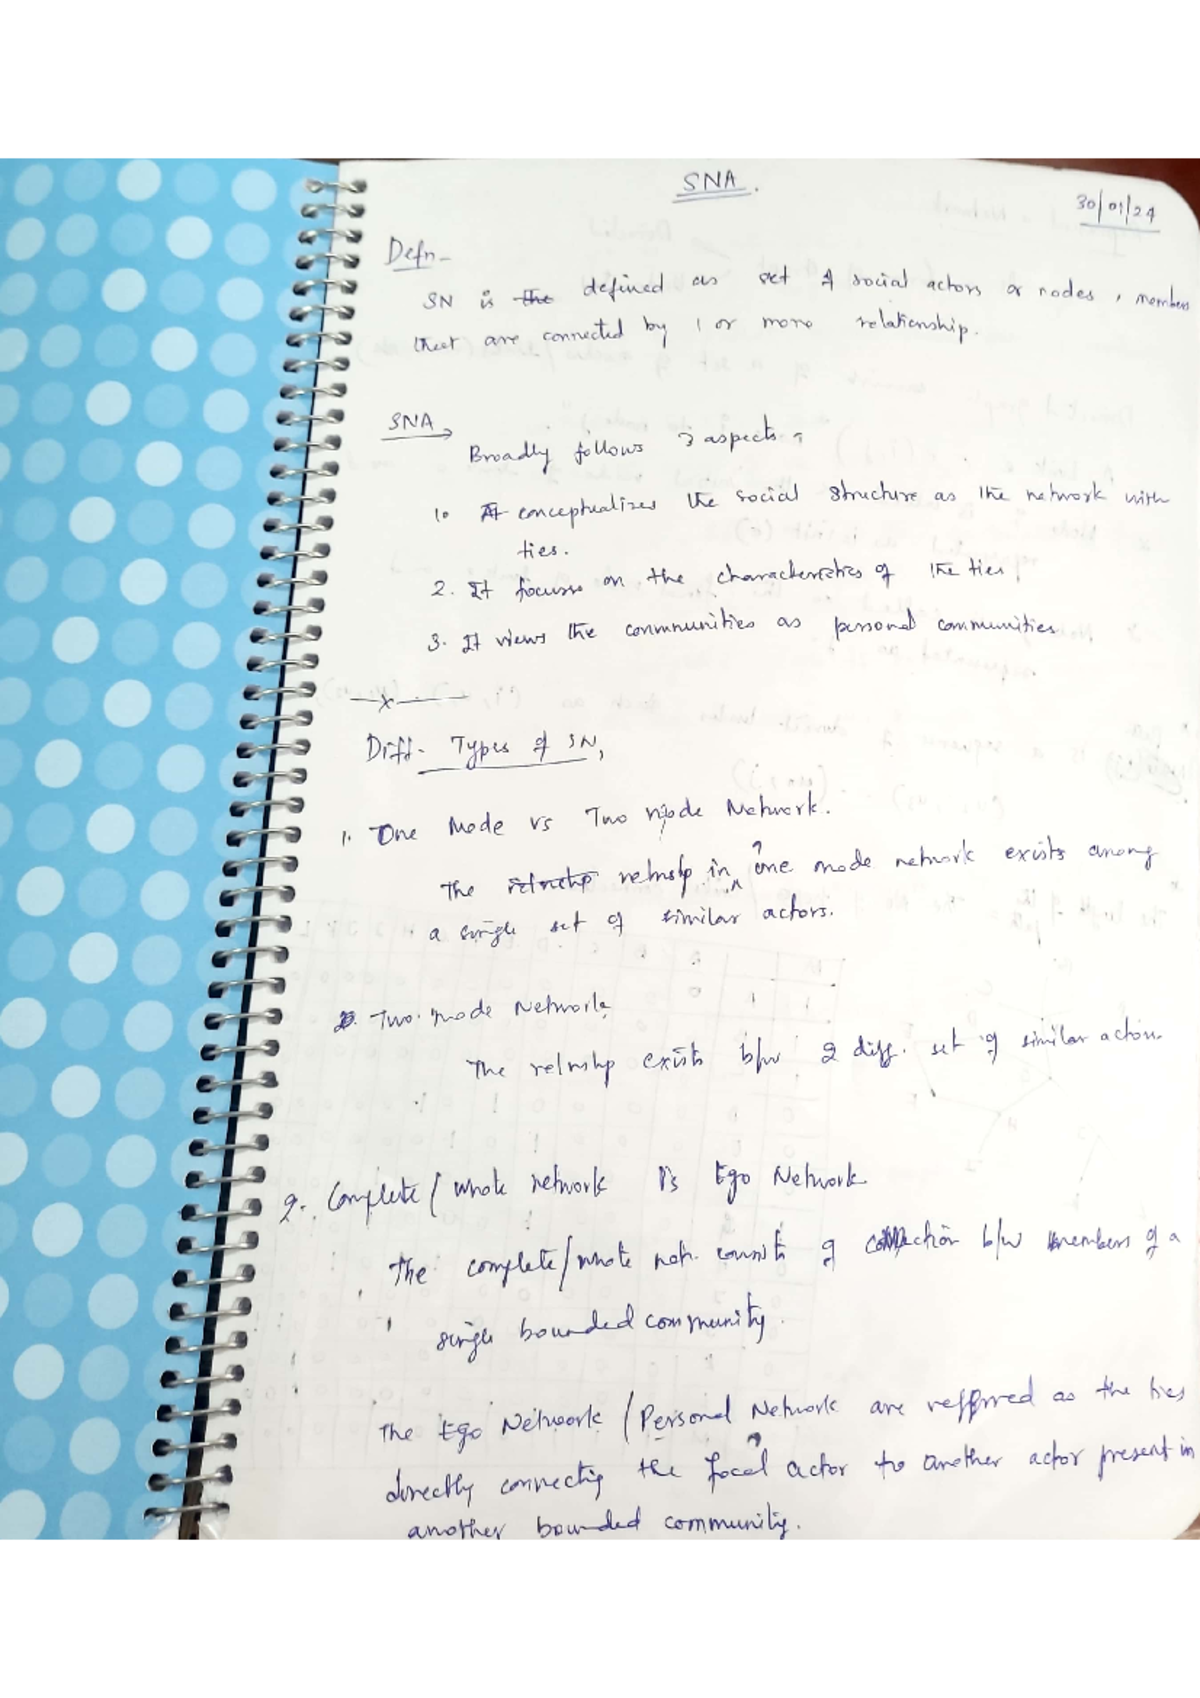 SNA.
30/01/24
Defn-
SN is the defined as set of social actors or nodes, members
that are connected by 1 or more relationship.
SNA
Broadly follows 3 aspects
1. It conceptualizes the social structure as the network with
ties.
2. It focuses on the characteristics of the ties
3. It views the communities as personal communities
Diff. Types of SN,
1. One Mode vs Two Mode Network.
The relnship relnshp in one mode network exists among
a single set of similar actors.
2. Two mode Network
The relnshp exists b/w 2 diff. set of similar actors.
2. Complete / whole network Vs Ego Network.
The complete/whole consists of connection b/w members of a
single bounded community.
The Ego Network / Personal Network are referred as the ties
directly connecting the focal actor to another actor present in
another bounded community.